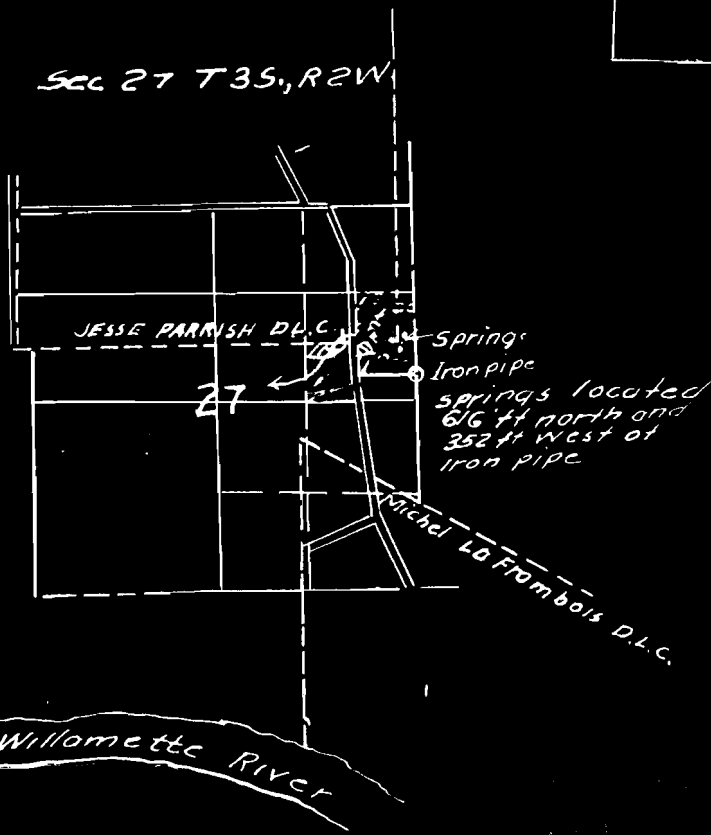 Sec 27 T3S., R2W
JESSE PARRISH D.L.C.
Springs
Iron pipe
27
springs located
616 ft north and
352 ft west of
iron pipe
Michel La Frambois D.L.C.
Willamette River